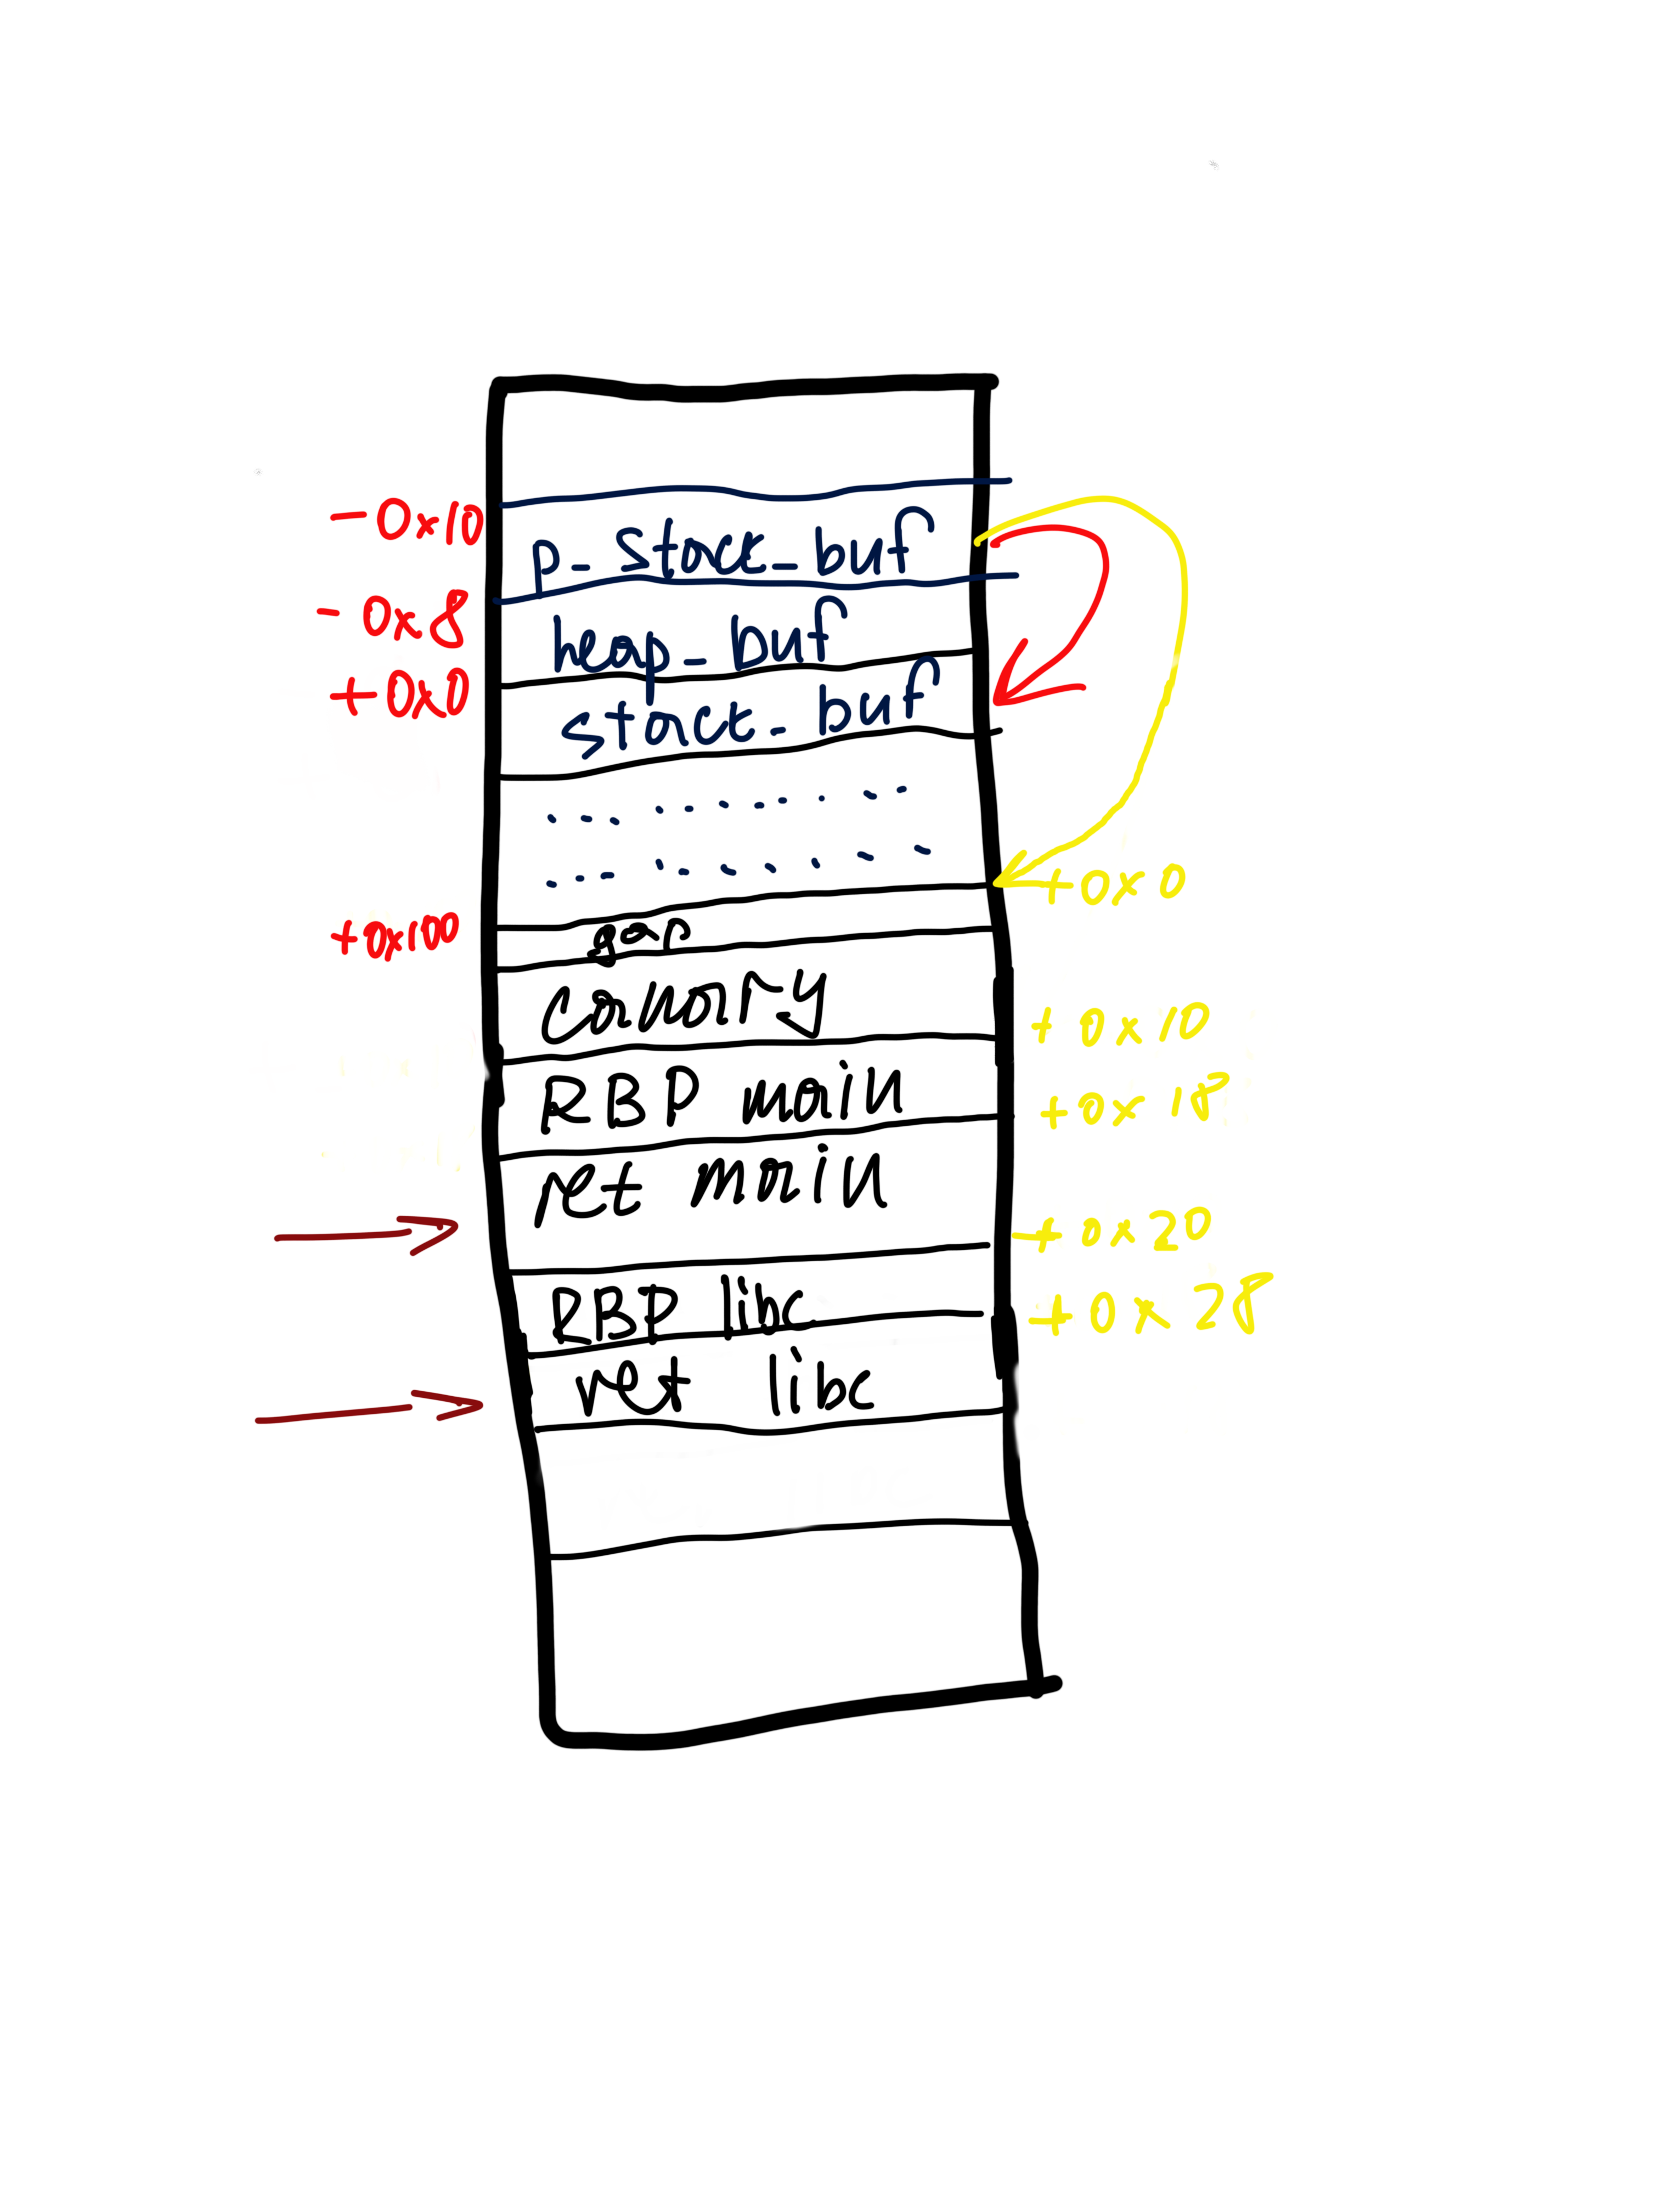 -0x10
p_stack_buf
-0x8
heap_buf
+0x0
stack_buf
+0x0
+0x100
gap
canary
+0x10
RBP main
+0x18
ret main
+0x20
RBP libc
+0x28
ret libc